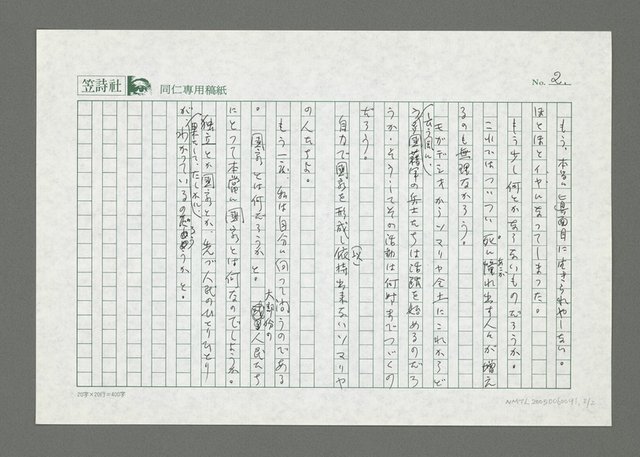 笠詩社
同仁専用稿紙
No. 2.
もう、本当に真面目に生きられやしない。
ほとほとイヤになってしまった。
もう少し何とかならないものだろうか。
これではついつい死に憧れ出す人々が増え
あこが
るのも無理なかろう。
モガデシオからソマリヤ全土にこれからど
(云う風に、
う多国籍軍の兵士たちは活躍を始めるのだろ
うか。そうしてその活動は何時までつづくの
だろう。
自力で国家を形成し依持出来ないソマリヤ
の人たちよ。
もう一度、私は自分に向って問うのである
。国家とは何だろうかと。
大部份の
人民たち
にとって本当に国家とは何なのでしょうか。
独立とか国家とか、先づ人民のひとりひとり
が
果してたしかに
わかっているのだろうかと。
20字×20行=400字
NMTL20050060041, 2/2